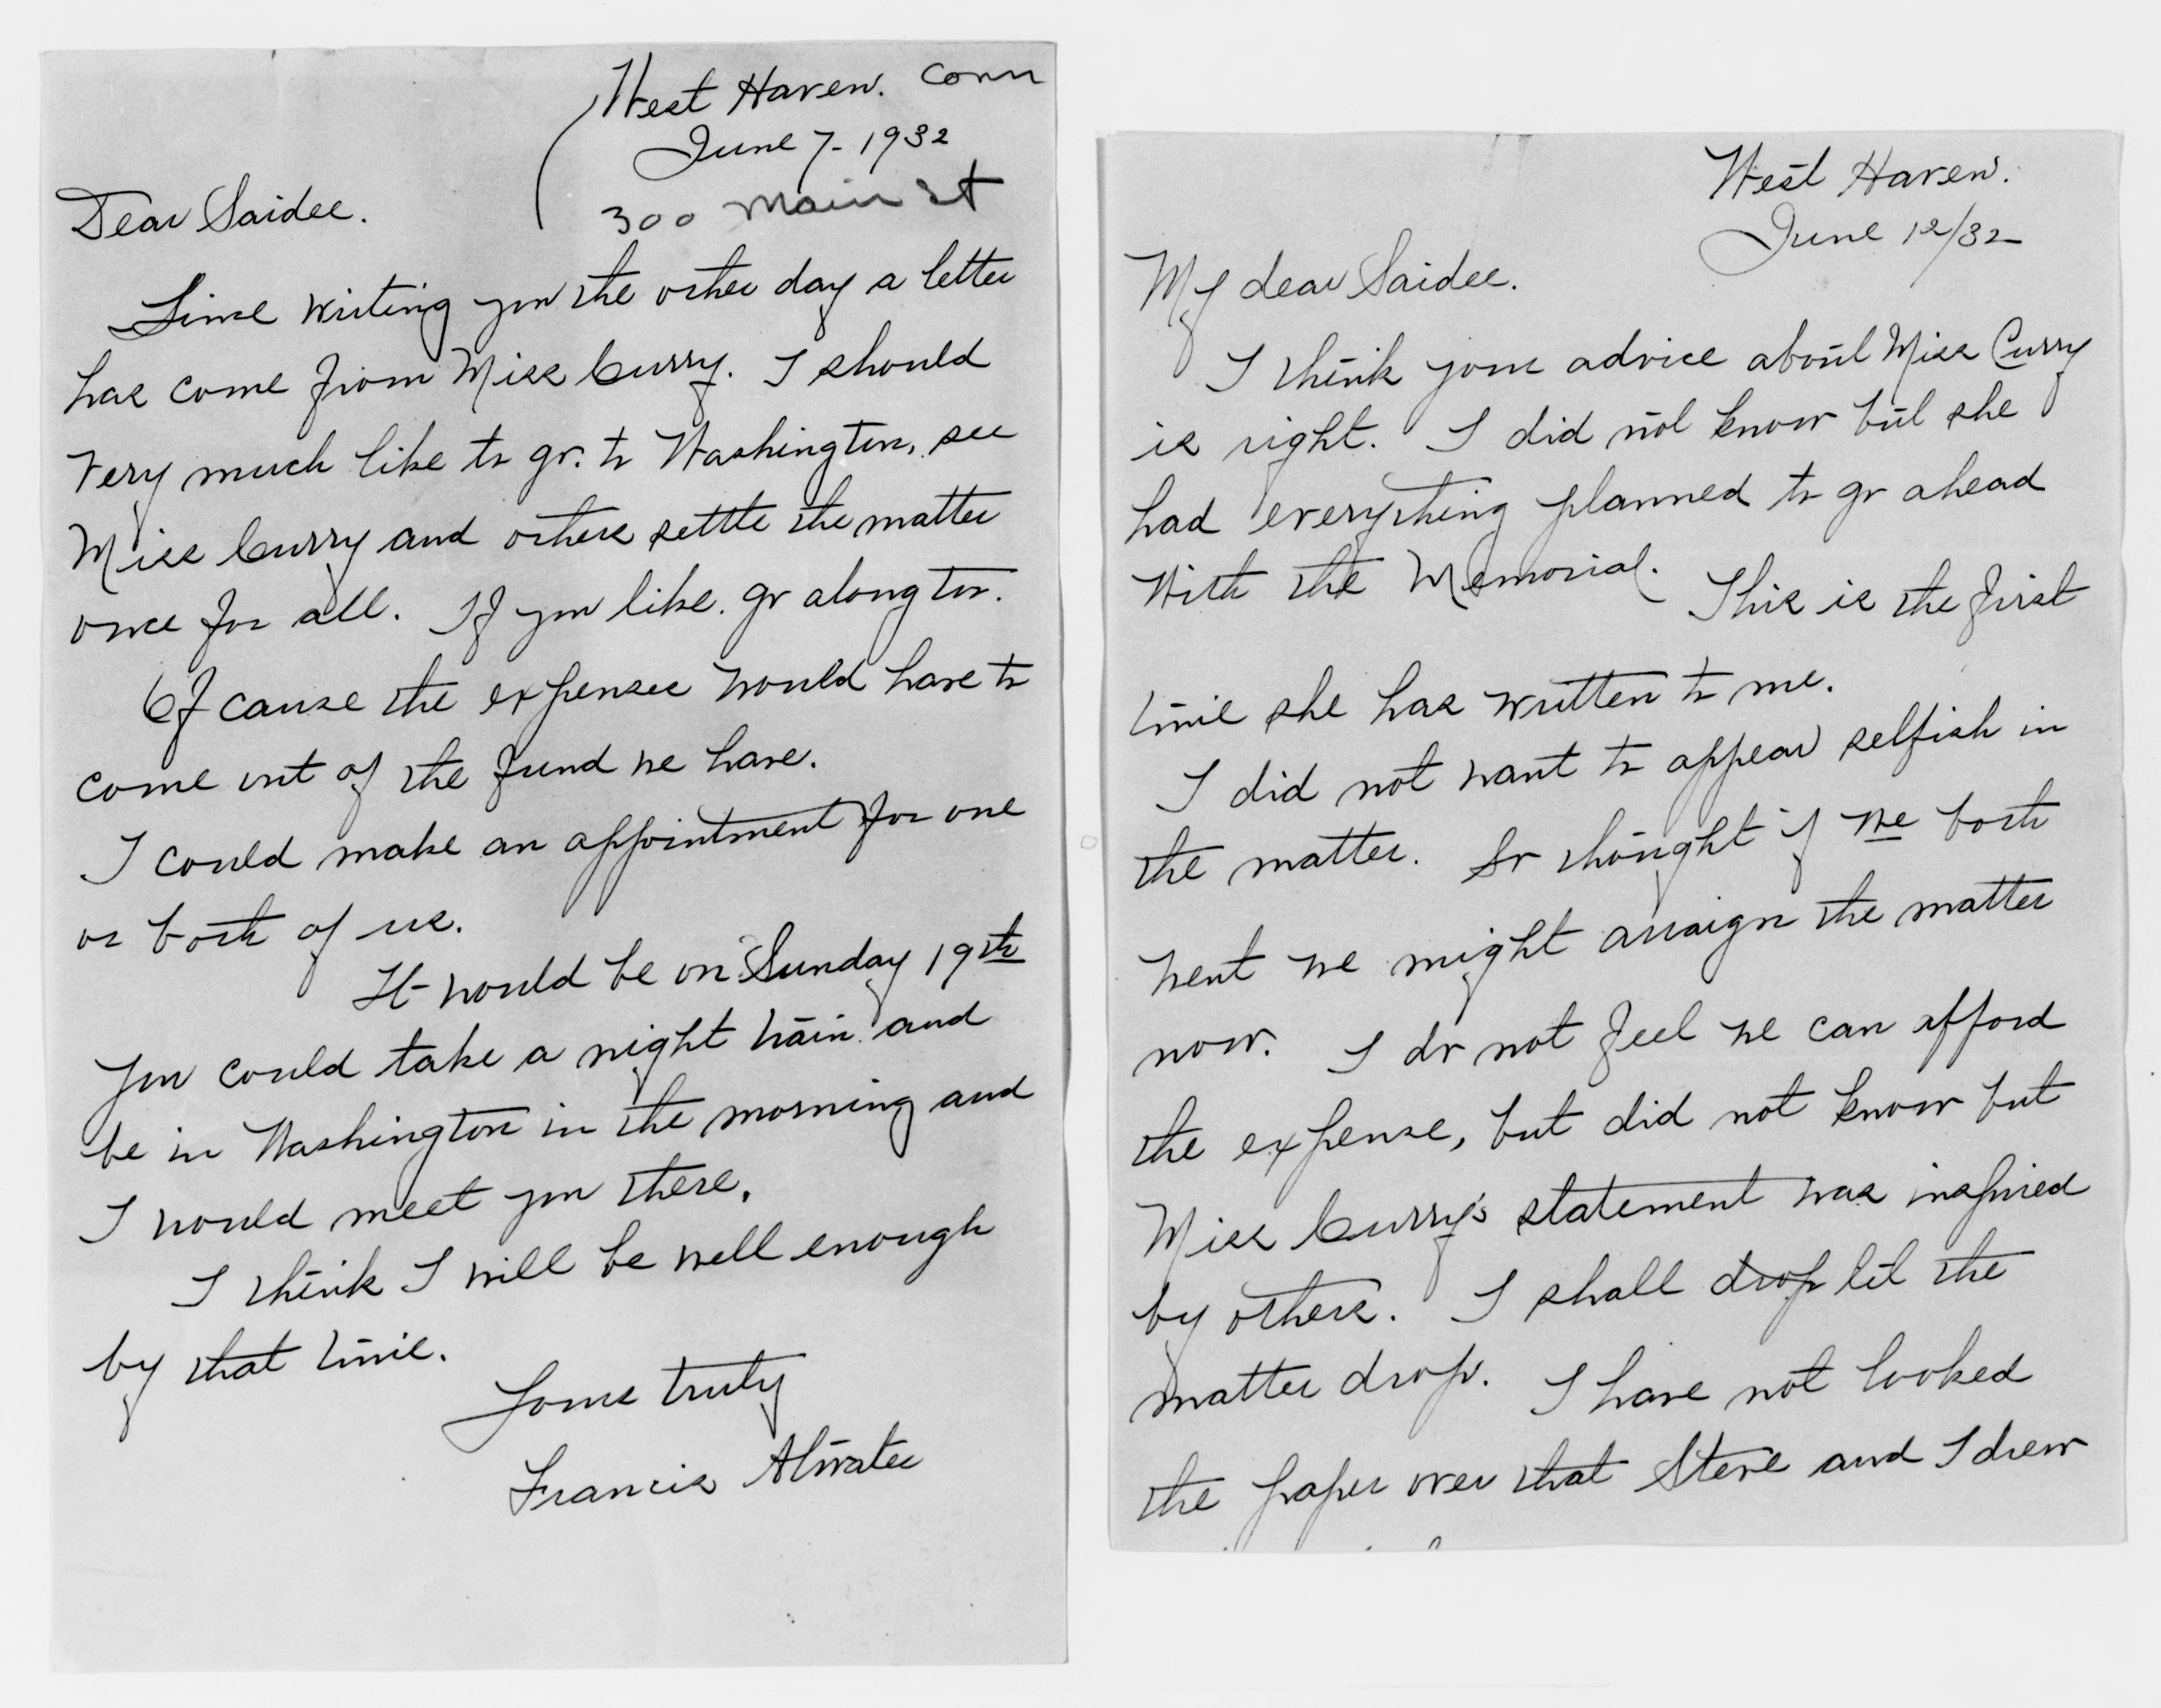 West Haven. Conn
June 7 - 1932
300 Main St
Dear Saidee.
Since writing you the other day a letter
has come from Miss Curry. I should
very much like to go to Washington, see
Miss Curry and others settle the matter
once for all. If you like. go along too.
Of cause the expenses would have to
come out of the fund we have.
I could make an appointment for one
or both of us.
It would be on Sunday 19th
You could take a night train and
be in Washington in the morning and
I would meet you there.
I think I will be well enough
by that time.
Yours truly
Francis Atwater
West Haven.
June 12/32
My dear Saidee.
I think your advice about Miss Curry
is right. I did not know but she
had everything planned to go ahead
with the Memorial. This is the first
time she has written to me.
I did not want to appear selfish in
the matter. So thought if we both
went we might arraign the matter
now. I do not feel we can afford
the expense, but did not know but
Miss Curry's statement was inspired
by others. I shall drop let the
matter drop. I have not looked
the paper over that Steve and I drew